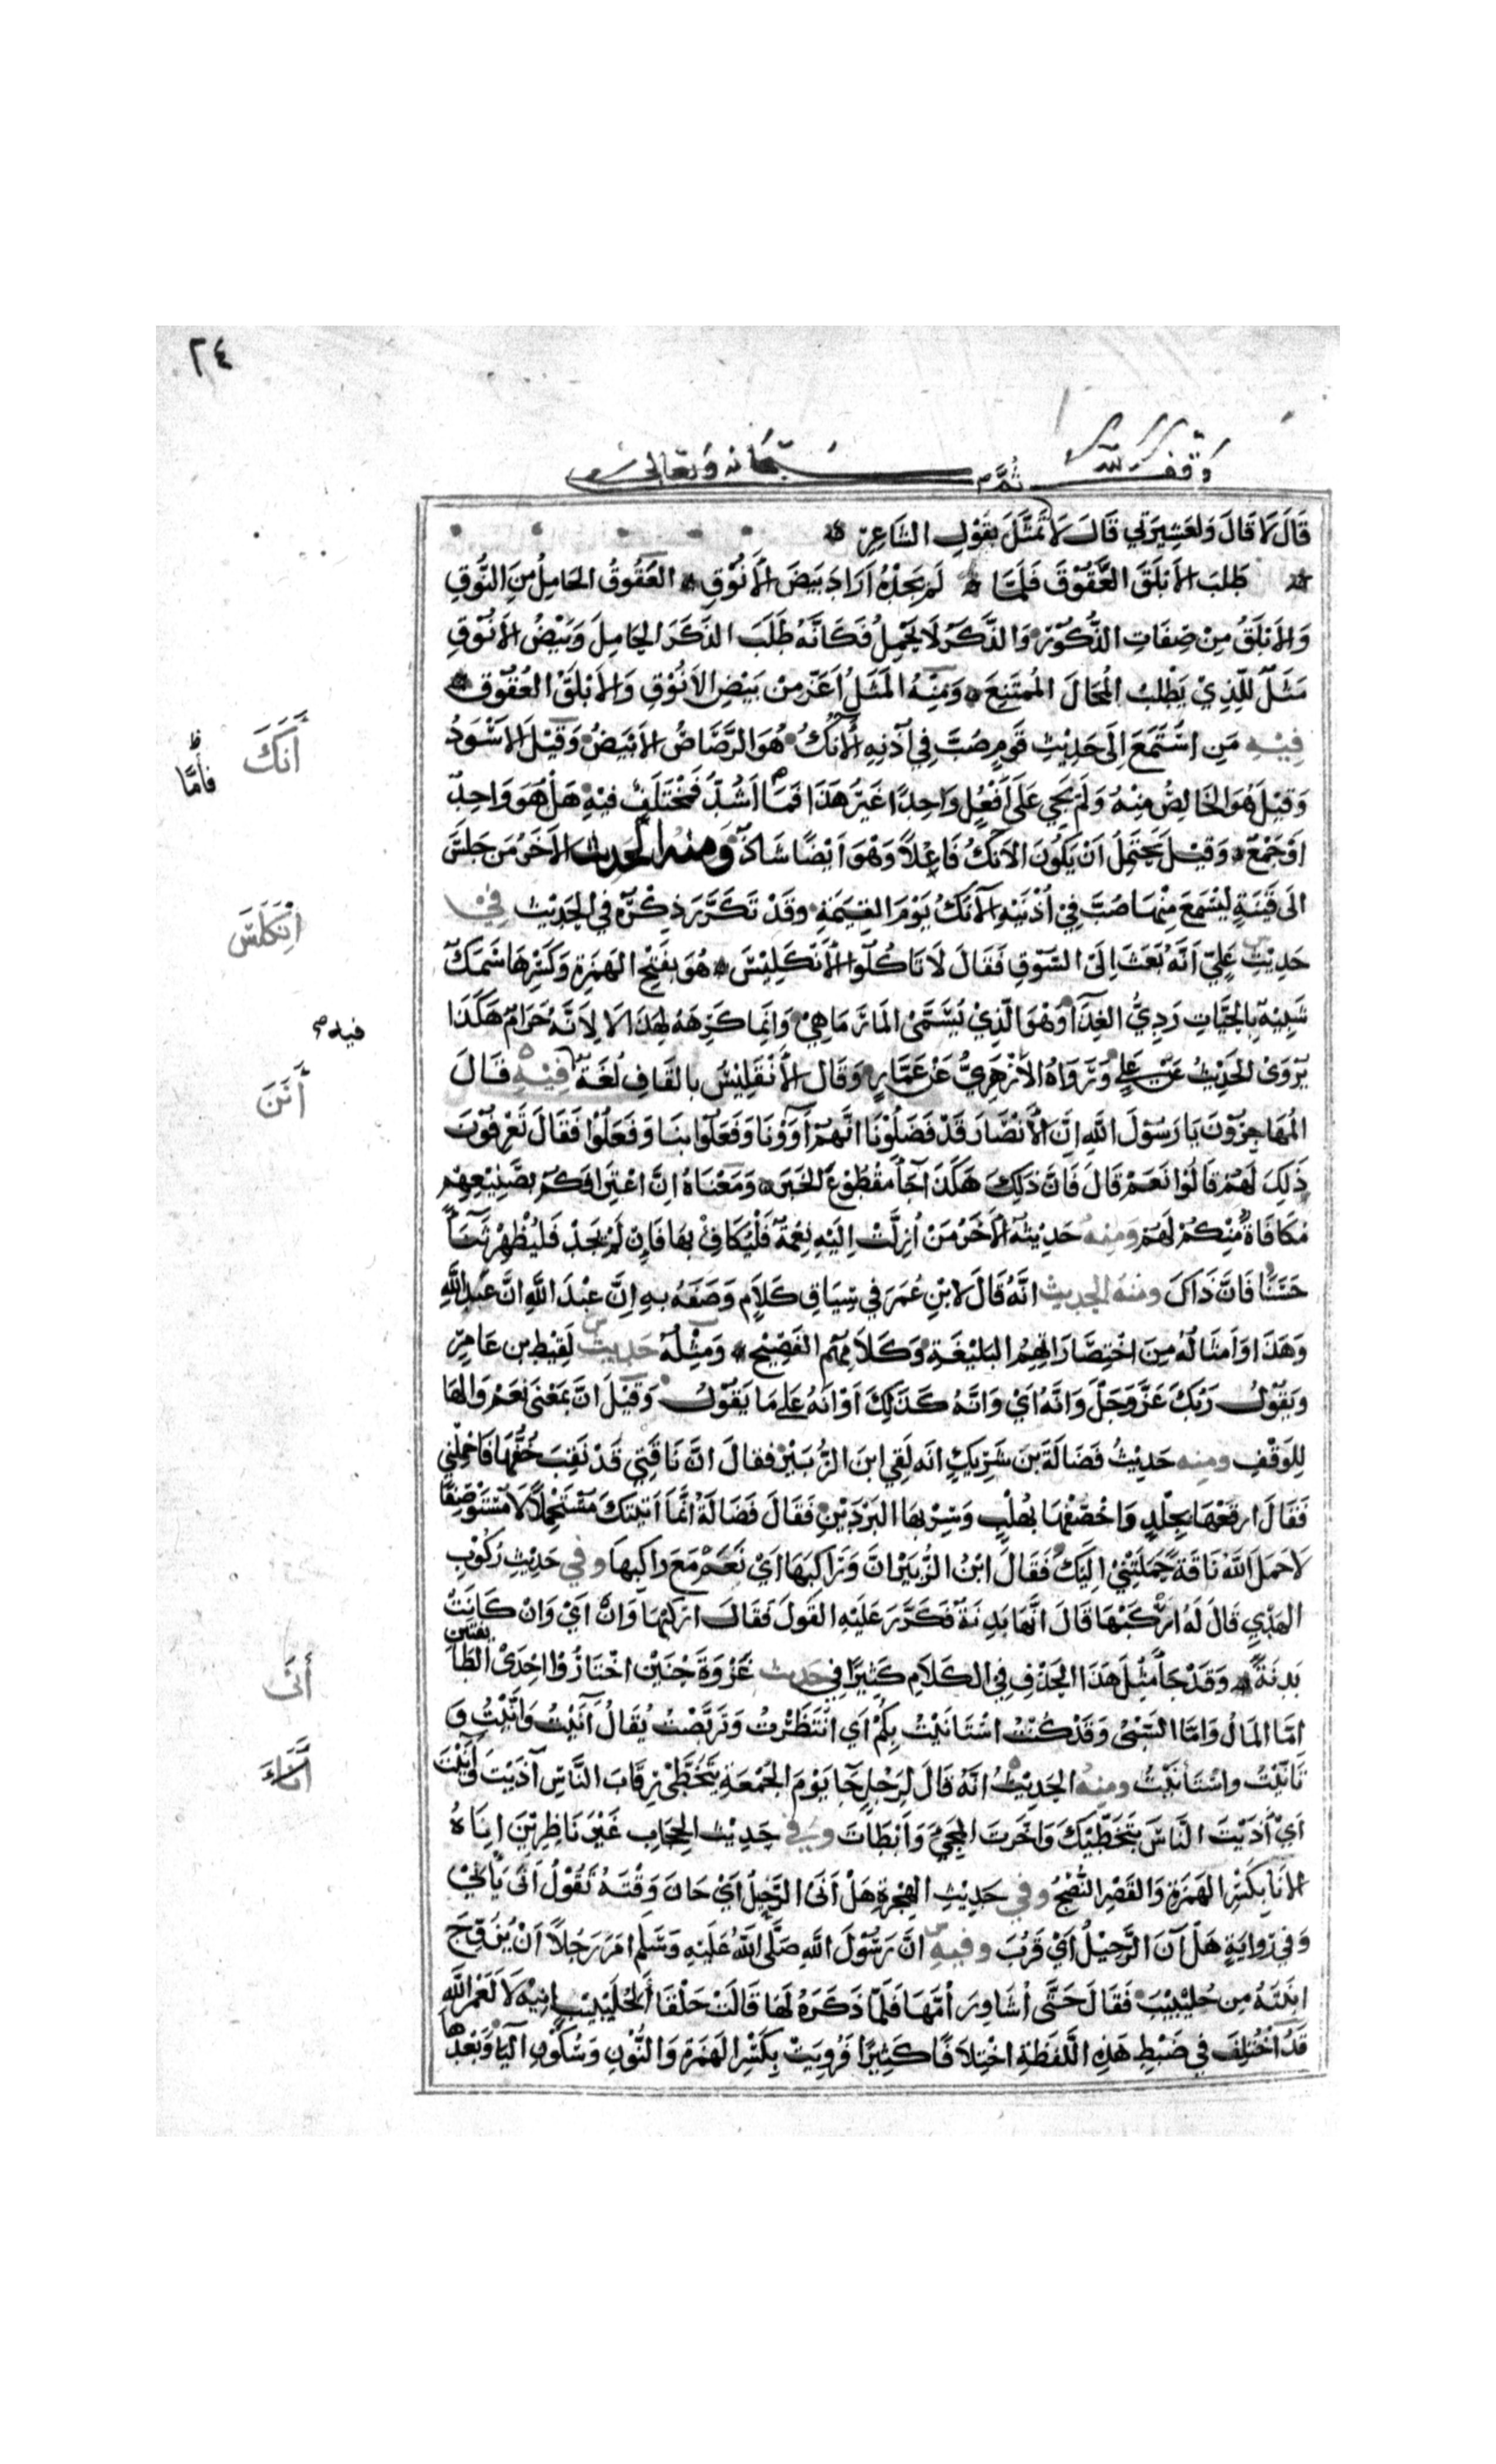 ٢٤
وقف لله ثم سبحانه وتعالى
قَالَ لَا قَالَ وَلعَشِيرَتي قَالَ لَا تَمَثَّلَ بقَوْلِ الشاعِرِ
طَلبَ الأبْلَقَ العَقُوْقَ فَلَمّا لَمْ يَجِدْهُ ارَادَ بَيضَ الأَنُوْقِ العَقُوقُ الحَامِلُ مِنَ النُّوقِ
وَالأبْلَقُ مِنْ صِفَاتِ الذُّكُوْرِ وَالذَّكَرُ لَا يَحْمِلُ فَكَانَّهُ طَلَبَ الذَّكَرَ الحَامِلَ وَبَيْضُ الأنُوْقِ
مَثَلٌ للّذِيْ يَطْلبُ المُحَالَ المُمتَنِعَ وَمِنْهُ المَثَلُ اَعَزّ مِنْ بَيْضِ الاَنُوْقِ وَالأبْلَقُ العُقُوْقِ
فِيْهِ مَنِ اسْتَمَعَ اِلَى حَدِيْثِ قَوْمٍ صُبَّ فِي اُذُنِهِ الآنُكُ هُوَ الرَّصَاصُ الأبْيَضُ وَقِيْلَ الأسْوَدُ
وَقِيْلَ هُوَ الخَالِصُ مِنْهُ وَلَمْ يَجِي عَلَى اَفْعُلٍ وَاحِدًا غَيْرُ هَذَا فَمَا اَشُدّ فَمُخْتَلَفٌ فيْهِ هَلْ هُوَ وَاحِدٌ
اوْ جَمْعٌ وَقِيْلَ يَحْتَمِلُ اَنْ يَكُونَ الآنُكُ فَاعُلاً وَهْوَ اَيْضًا شَاذٌّ وَمِنْهُ الحَديث الآخَرُ مَن جَلَسَ
الى قَيْنَةٍ لِيَسْمَعَ مِنْهَا صُبَّ فِيْ اُذْنَيْهِ الآنُكُ يَوْمَ القِيٰمَةِ وَقَدْ تَكَرَّرَ ذِكْرُهُ في الحَدِيْثِ فِي
حَدِيْثِ عَلِيّ اَنَّهُ بَعَثَ اِلَى السُّوْقِ فَقَالَ لَا تَاكُلُوا الأَنْكَلِيْسَ هُوَ بفَتْحِ الهَمْزَةِ وَكَسْرِهَا سَمَكٌ
شَبِيْهٌ بِالحَيَّاتِ رَدِيُّ الغِذَآ وَهْوَ الّذِيْ يُسَمَّى المَارَ مَاهِيْ وَانِمَا كَرِهَهُ لِهَذَا لَا لِاَنَّهُ حَرَامٌ هَكَذَا
يُرْوَى الحَدِيْثُ عَنْ عَلِي وَرَوَاهُ الأزْهَرِيُّ عَنْ عَمَّارٍ وَقَال الأَنْقَلِيْسُ بالقَافِ لُغَةٌ فِيْهِ قَالَ
المُهَاجِرُوْنَ يَا رَسُوْلَ اللهِ اِنّ الأَنْصَارَ قَدْ فَضَلُوْنَا انَّهُمْ آوَوْنَا وَفَعَلُوْا بنَا وَفَعَلُوْا فَقَالَ تَعْرِفُوْنَ
ذَلِكَ لَهُمْ قَالُوْا نَعَمْ قَالَ فَانَّ ذَلِكَ هَكَذَا جَآ مَقْطُوْعَ الخَبَرِ وَمَعْنَاهُ اِنَّ اعْتِرَافَكُمْ بصَنِيْعِهِمْ
مُكَافَاةٌ مِّنْكُمْ لَهُمْ وَمِنْهُ حَدِيْثُهُ الآخَرُ مَنْ اُزِلَّتْ اِلَيْهِ نِعْمَةٌ فَلْيُكَافِ بهَا فَاِن لَمْ يَجِدْ فَليُظْهِرْ ثَنَآءً
حَسَنًا فَانَّ ذَاكَ ومنهُ الحديث انَّهُ قَالَ لابْنِ عُمَرَ فِي سِيَاقِ كَلَامٍ وَصَفَهُ بهِ اِنَّ عبْدَ اللهِ اِنَّ عَبدَ اللهِ
وَهَذَا وَاَمثَالُهُ مِنَ اخْتِصَارَاتِهِمُ البَلِيْغَةِ وَكَلَامِهِمُ الفَصِيْحِ وَمِثْلُهُ حَديث لَقِيْطِ بن عَامِرٍ
وَيَقُوْلُ رَبُّكَ عَزَّ وَجَلَّ وَانَّهُ اَيْ وَانَّهُ كَذَلِكَ اَوْ انَهُ عَلَى مَا يَقُوْلُ وَقِيْلَ انَّ بمَعْنَى نَعَمْ وَالهَا
لِلوَقْفِ ومنه حَدِيْثُ فَضَالَةَ بن شَرِيكٍ انَه لَقِي ابنَ الزُّبَيْرِ فقالَ انَّ نَاقَتِي قَدْ نَقِبَ خُفُّهَا فَاحْمِلْنِي
فَقَالَ ارقَعْهَا بجِلْدٍ وَاخْصِفْهَا بهُلْبٍ وَسِرْ بهَا البَرْدَيْنِ فَقَالَ فَضَالَةُ انَّمَا اَتَيتكَ مُسْتَحْمِلاً لَا مُسْتَوْصِفًا
لَا حَمَلَ اللهُ نَاقَةً حَمَلَتْنِيْ اِلَيْكَ فَقَالَ ابْنُ الزُّبَيْرِ انَّ وَرَاكِبَهَا اَيْ نَعَمْ مَعَ رَاكِبِهَا وفي حَدِيْثِ رُكُوْبِ
الهَدْيِ قَالَ لَهُ ارْكَبْهَا قَالَ انَّهَا بَدنَةٌ فَكَرَّرَ عَلَيْهِ القَوْلَ فَقَالَ ارْكَبْهَا وَانْ اَيْ وَانْ كَانَتْ
بَدنَةً وَقَدْ جَآ مِثْلَ هَذَا الحَذْفِ فِي الكَلَامِ كَثِيرًا في حَديث غَزْوَةِ حُنَيْنٍ اخْتَارُوْا اِحْدَى الطَّا
ئفتَيْنِ
امَّا المَالُ وَامّا السَّبْيُ وَقَدْ كُنْتُ اسْتَانَيْتُ بِكُمْ اَي انْتَظَرْتُ وَتَرَبَّصْتُ يُقَالُ اَنَيْتُ وَاَنَّيْتُ وَ
تَانَّيْتُ وَاسْتَانَيْتُ ومِنهُ الحَدِيْثُ انّهُ قَالَ لِرَجُلٍ جَآ يَوْمَ الجُمُعَةِ يَتَخَطَّى رِقَابَ النَّاسِ آذَيْتَ وَآنَيْتَ
اَيْ اٰذَيْتَ النَّاسَ بتَخَطِّيْكَ وَاخَّرْتَ المَجِيَ وَاَبْطَاتَ وَفي حَدِيْثِ الحِجَابِ غَيْرَ نَاظِرِيْنَ اِنَاهُ
الاِنَا بكَسْرِ الهَمْزَةِ وَالقَصْرِ النُّضْجُ وفي حَدِيْثِ الهِجْرَةِ هَلْ اَنَى الرَّحِيْلُ اَيْ حَانَ وَقْتُهُ تَقُوْلُ اَنَى يَانِيْ
وَفي رِوَايَةٍ هَلْ آنَ الرَّحِيْلُ اَيْ قَرُبَ وفيه انَّ رَسُوْلَ اللهِ صَلَّى اللهُ عَلَيْهِ وَسَلّم امَرَ رَجُلاً اَنْ يُزَوِّجَ
ابنَتَهُ مِن جُلَيْبِيْبٍ فَقَالَ حَتَّى اُشَاوِرَ اُمَّهَا فَلَمّا ذَكَرَهُ لَهَا قَالَتْ حَلْقَا الجُلَيْبِيْبِ اِنِيْهْ لَا لَعَمْرُ اللهِ
قَدُ اخْتُلِفَ فِي ضَبْطِ هَذِهِ اللَّفَظَةِ اخْتِلَافًا كَثِيْرًا فَرُوِيَتْ بِكَسْرِ الهَمْزَةِ وَالنُّوْنِ وَسُكُوْنِ اليَآ وَبَعْدَهَا
أَنَكَ
فأمّا
أنْكَلَسَ
فيه
أَنَنَ
أَنَى